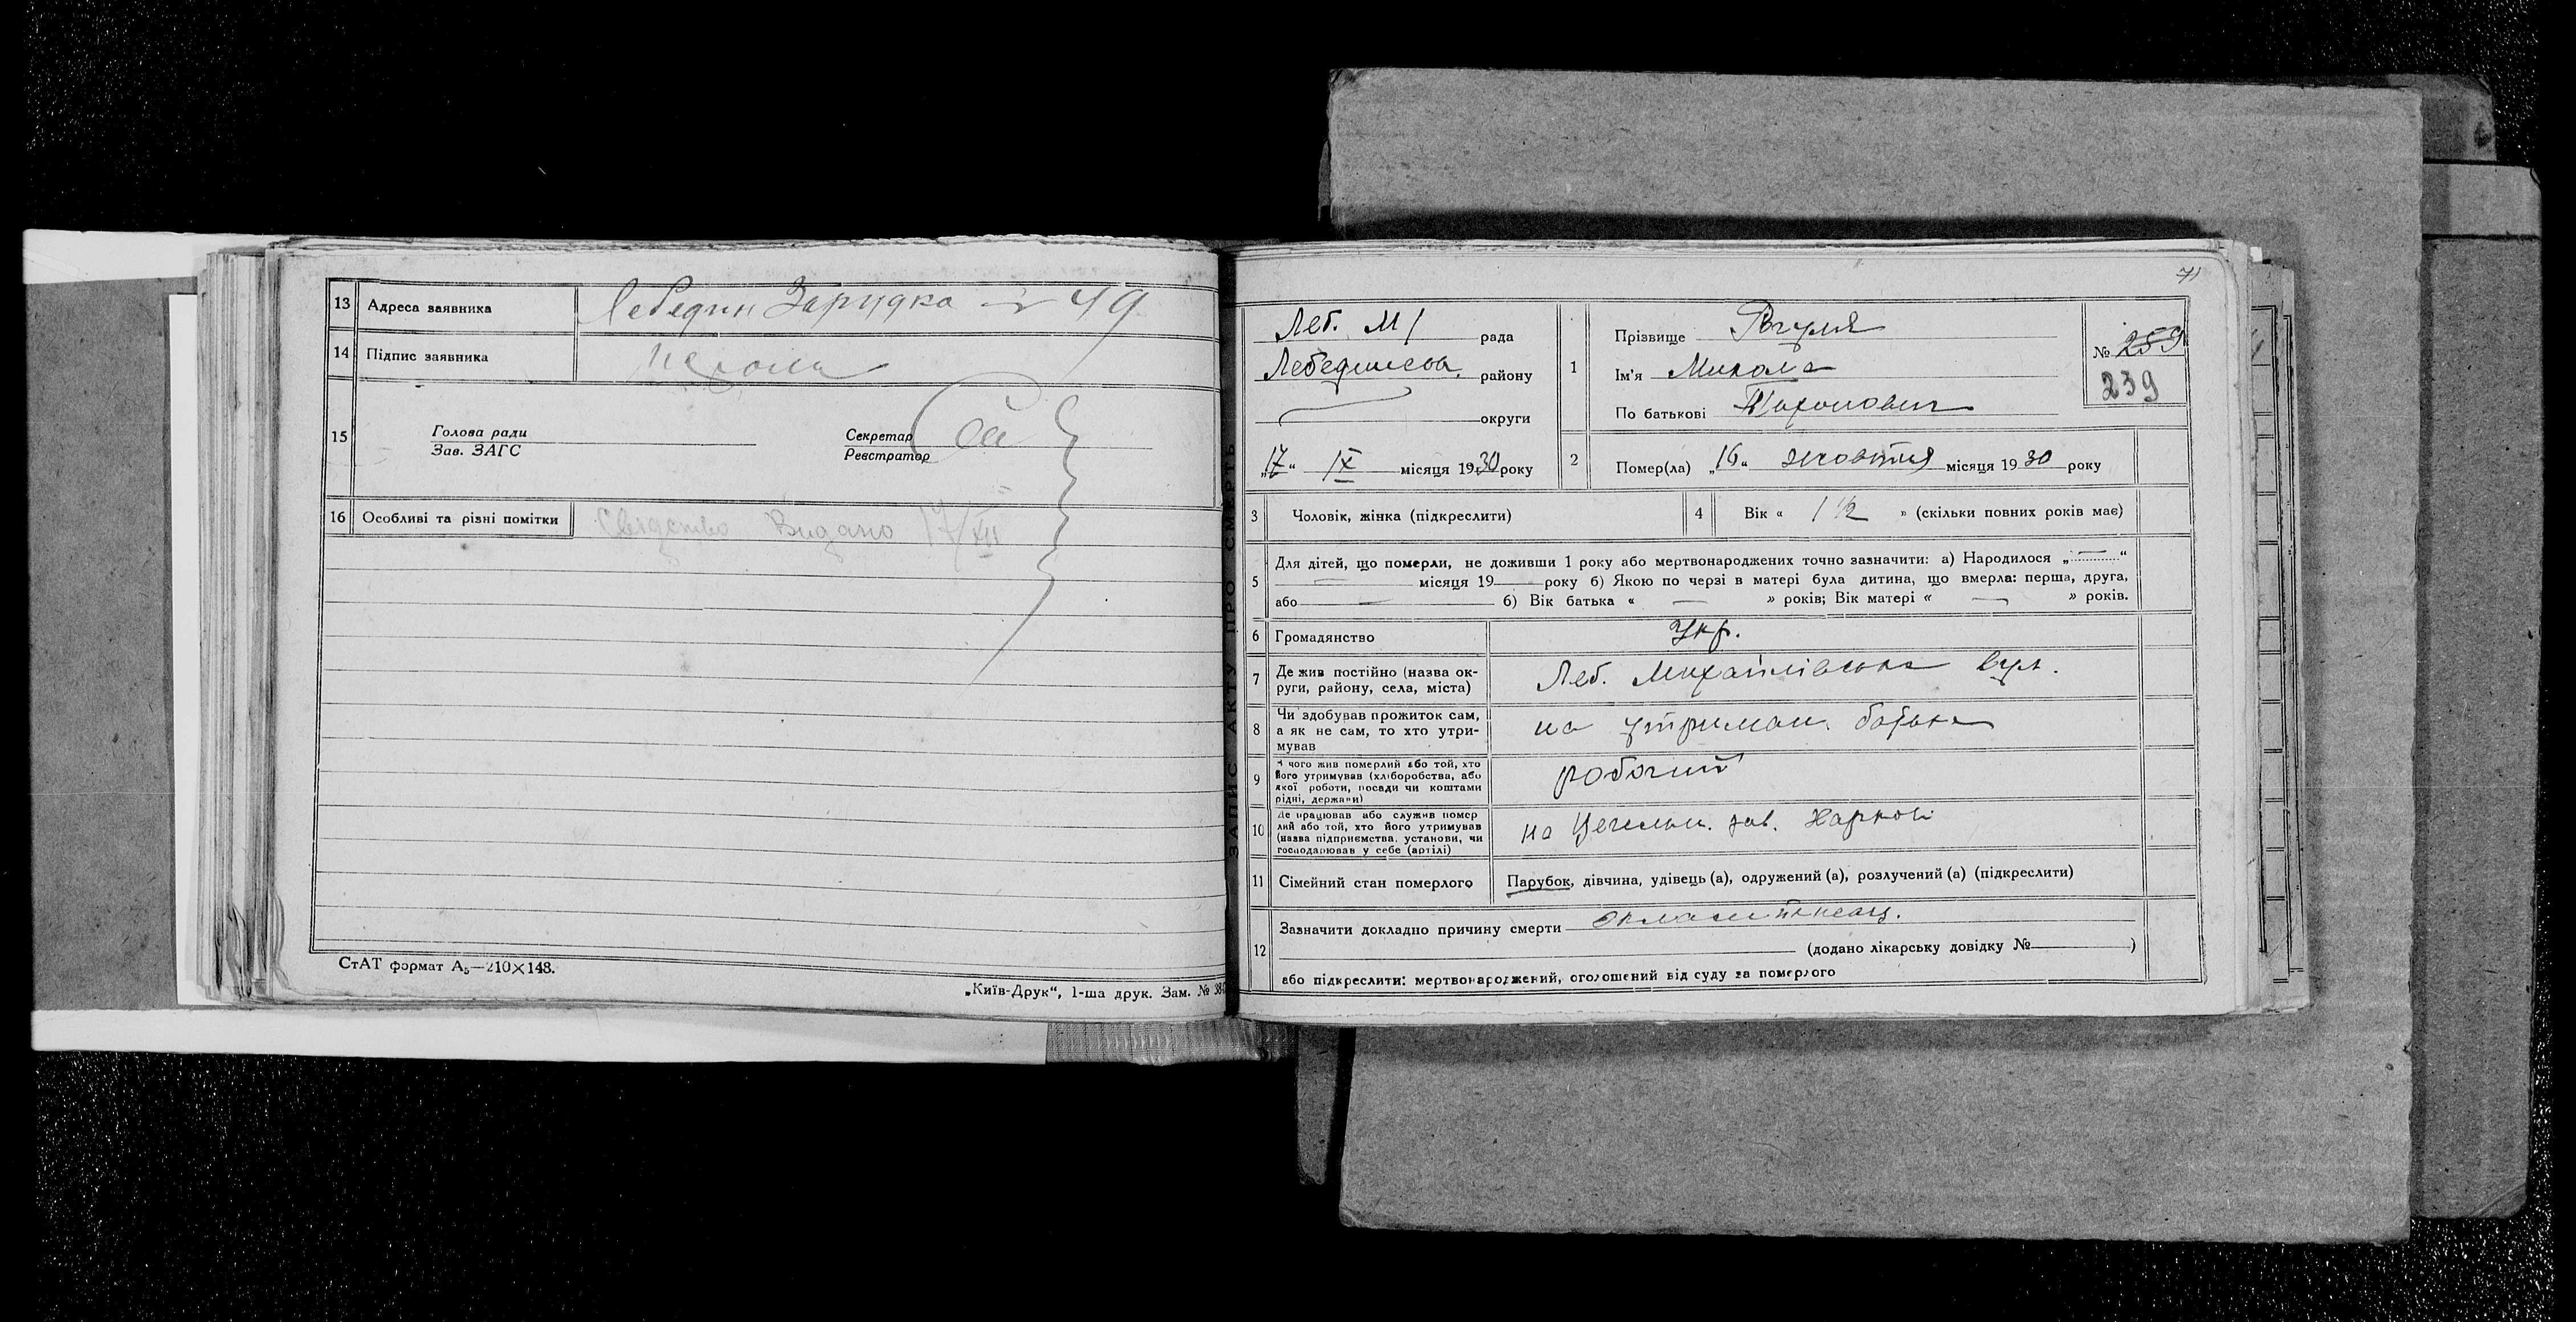 13 Адреса заявника Лебедин Зарудка 49
14 Підпис заявника
15 Голова ради
Зав. ЗАГС
Секретар
Реєстратор
16 Особливі та різні помітки Свідство Видано 17/XII
СтАТ формат А5—210×148.
„Київ-Друк“, 1-ша друк. Зам. №
ЗАПИС АКТУ ПРО СМЕРТЬ
71
Леб. М/ рада
Лебединськ. району
округи
„17“ IX місяця 1930 року
1 Прізвище
Ім'я Микола
По батькові Тихонович
№ 259
239
2 Помер(ла) „16“ жовтня місяця 1930 року
3 Чоловік, жінка (підкреслити)
4 Вік « 1 ½ » (скільки повних років має)
5 Для дітей, що померли, не доживши 1 року або мертвонароджених точно зазначити: а) Народилося „—“
— місяця 19— року б) Якою по черзі в матері була дитина, що вмерла: перша, друга,
або — б) Вік батька « — » років; Вік матері « — » років.
6 Громадянство Укр.
7 Де жив постійно (назва ок-
руги, району, села, міста) Леб. Михайлівська вул.
8 Чи здобував прожиток сам,
а як не сам, то хто утри-
мував на утриман. батька
9 З чого жив померлий або той, хто
його утримував (хліборобства, або
якої роботи, посади чи коштами
рідні, держави) робочий
10 Де працював або служив помер
лий або той, хто його утримував
(назва підприємства, установи, чи
господарював у себе (артілі) на Цегельн. зав. Харкові
11 Сімейний стан померлого Парубок, дівчина, удівець (а), одружений (а), розлучений (а) (підкреслити)
12 Зазначити докладно причину смерти
(додано лікарську довідку № )
або підкреслити: мертвонароджений, оголошений від суду за померлого